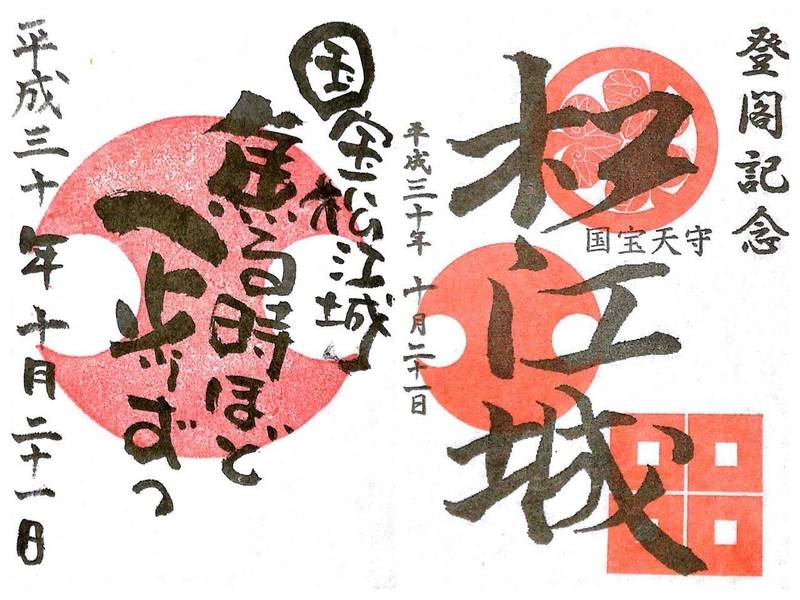 登閣記念
松江城
国宝天守
平成三十年 十月二十一日
国宝松江城
焦る時ほど
一歩ずつ
平成三十年 十月二十一日